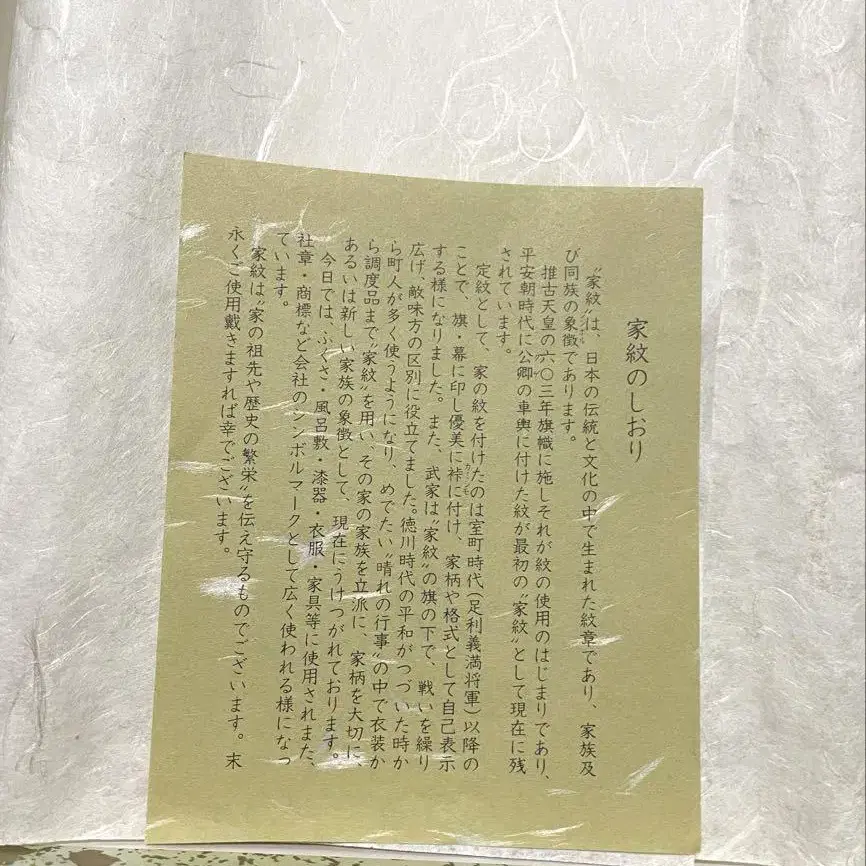 家紋のしおり
〝家紋〟は、日本の伝統と文化の中で生まれた紋章であり、家族及
び同族の象徴であります。
推古天皇の六〇三年旗幟に施しそれが紋の使用のはじまりであり、
平安朝時代に公卿の車輿に付けた紋が最初の〝家紋〟として現在に残
されています。
定紋として、家の紋を付けたのは室町時代(足利義満将軍)以降の
ことで、旗・幕に印し優美に裃に付け、家柄や格式として自己表示
する様になりました。また、武家は〝家紋〟の旗の下で、戦いを繰り
広げ、敵味方の区別に役立てました。徳川時代の平和がつづいた時か
ら町人が多く使うようになり、めでたい〝晴れの行事〟の中で衣装か
ら調度品まで〝家紋〟を用い、その家の家族を立派に、家柄を大切に、
あるいは新しい家族の象徴として、現在にうけつがれております。
今日では、ふくさ・風呂敷・漆器・衣服・家具等に使用されまた、
社章・商標など会社のシンボルマークとして広く使われる様になっ
ています。
家紋は〝家の祖先や歴史の繁栄〟を伝え守るものでございます。末
永くご使用戴きますれば幸でございます。